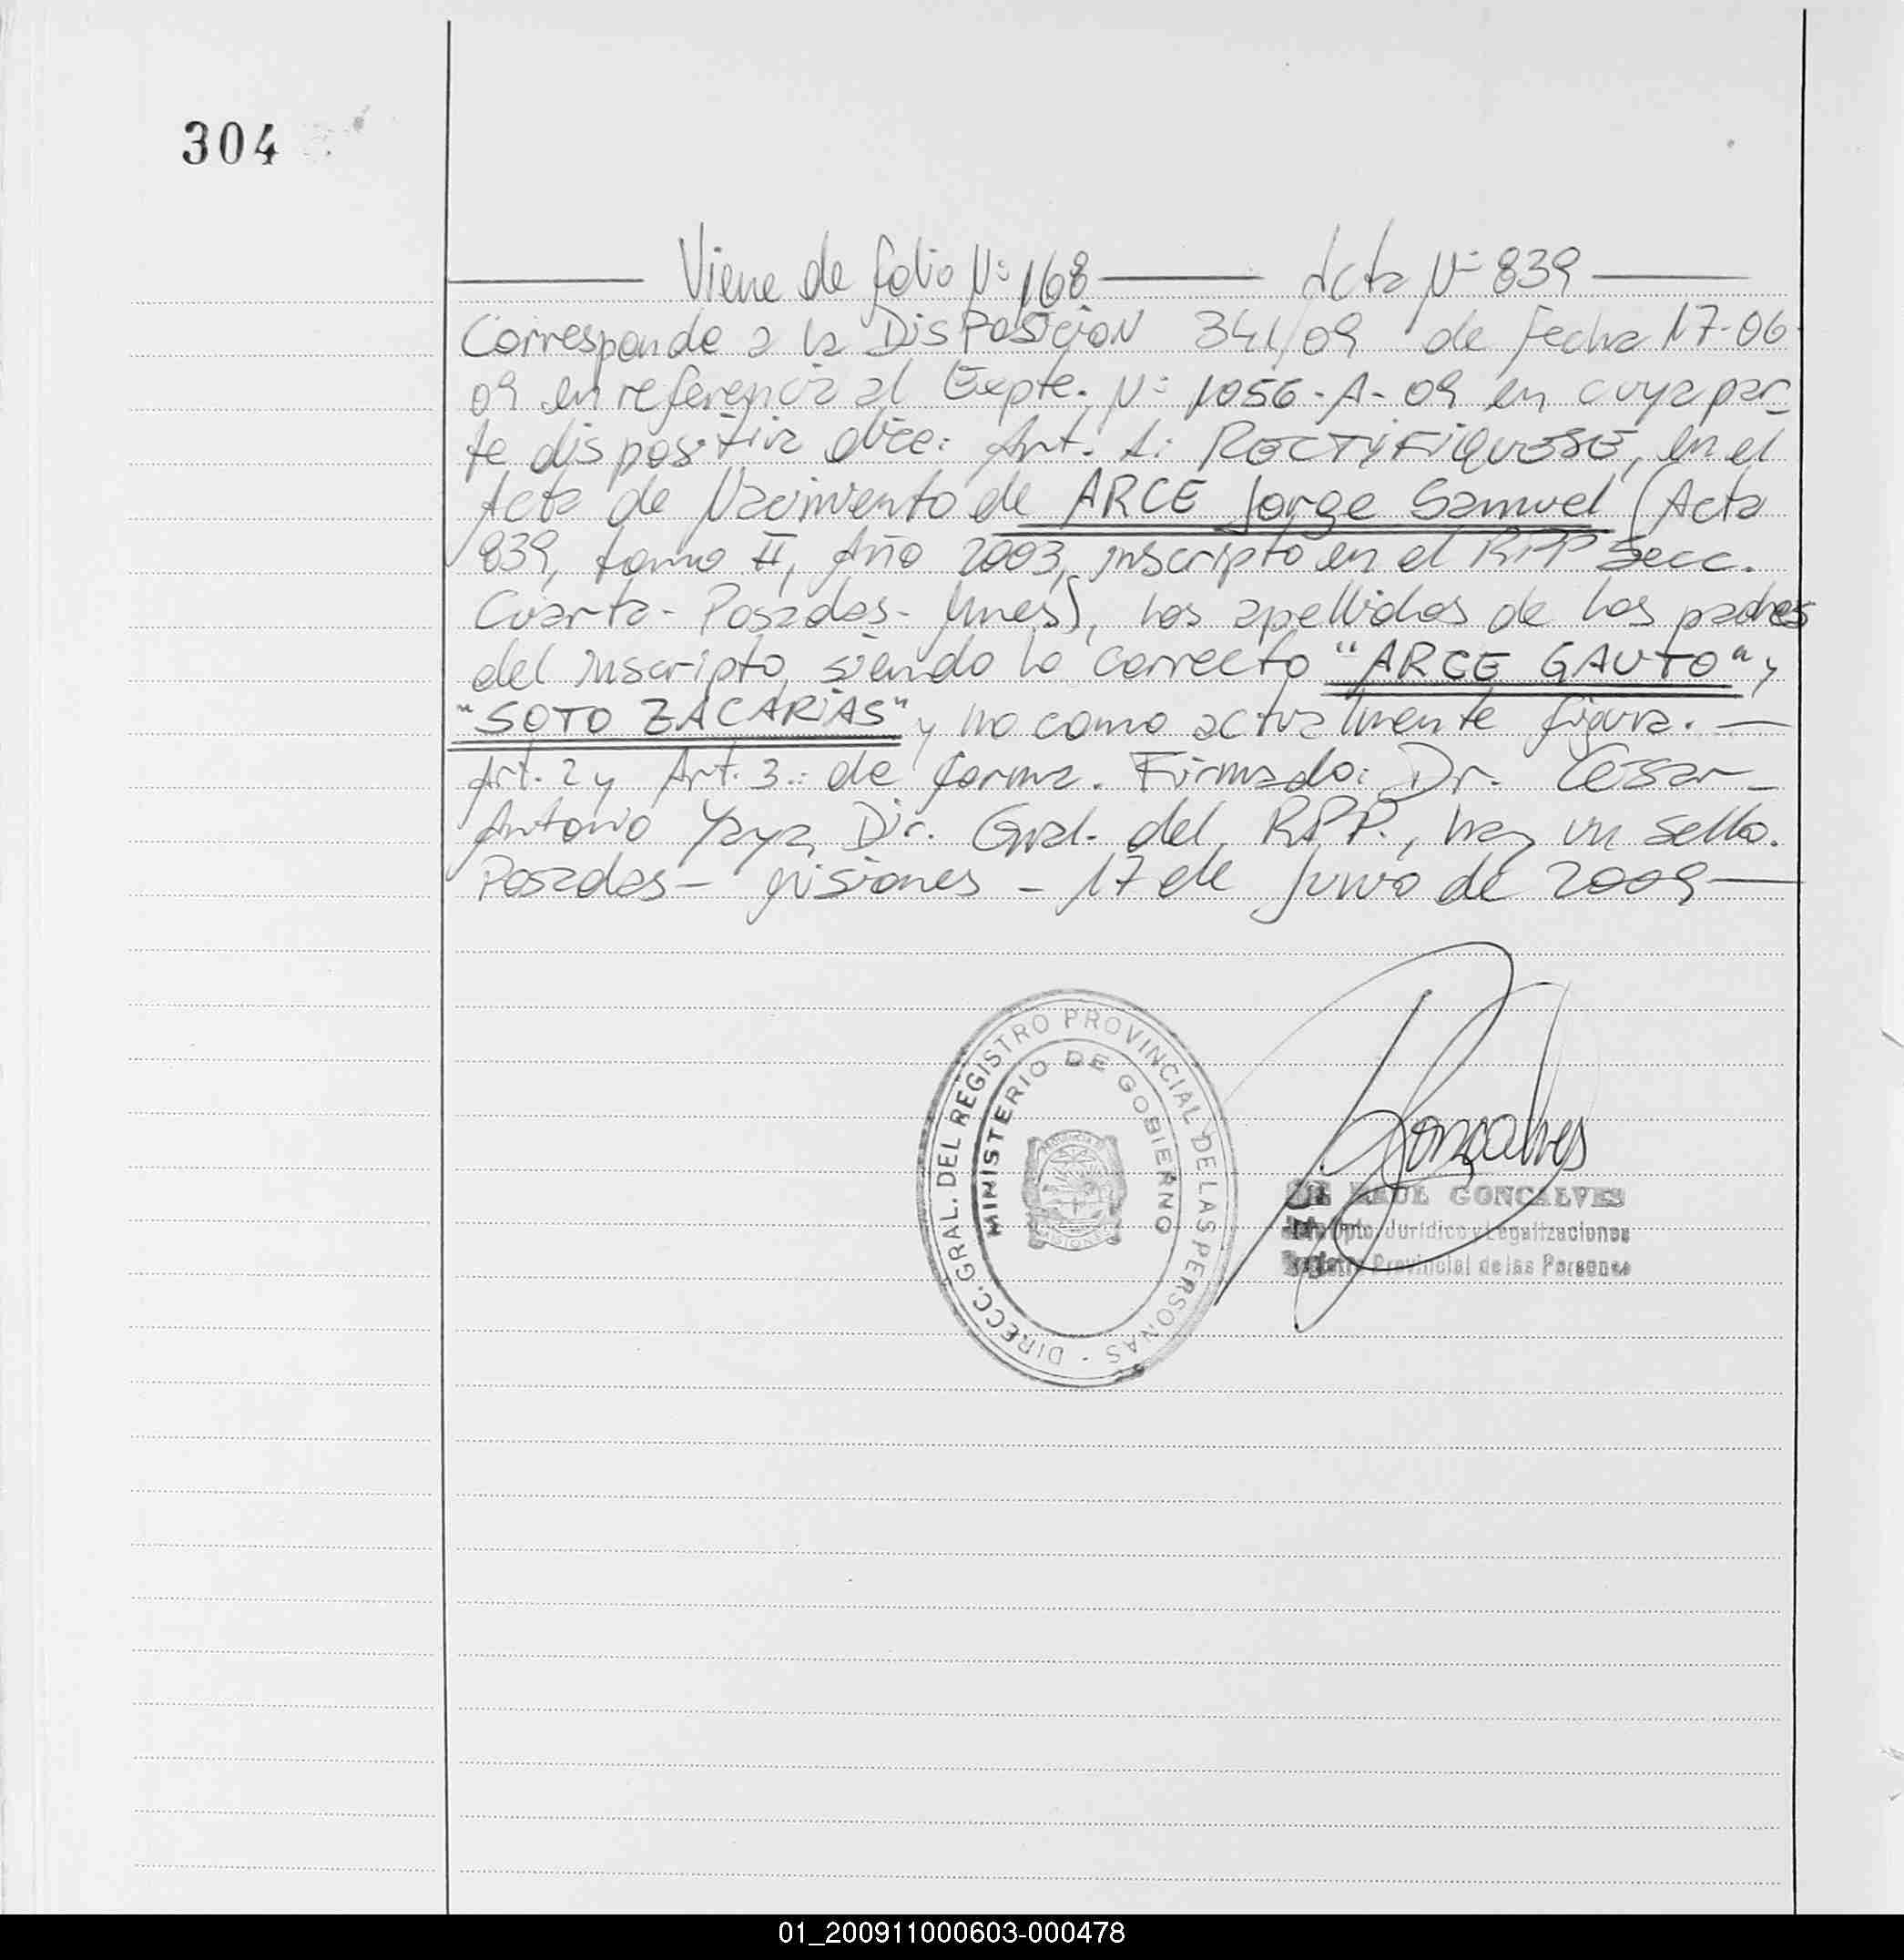 304
Viene de folio Nº 168 Acta Nº 839
Corresponde a la DisPosicioN 341/09 de fecha 17-06-
09 en referencia al Expte. Nº 1056-A-09 en cuya par_
te dispositiva dice: Art. 1: RECTiFiQUESE, en el
Acta de Nacimiento de ARCE Jorge Samuel (Acta
839, tomo II, Año 2003, inscripto en el RPP Secc.
Cuarta- Posadas- Mnes), los apellidos de los padres
del inscripto, siendo lo correcto "ARCE GAUTO" y
"SOTO ZACARiAS" y no como actualmente figura. —
Art. 2 y Art. 3.: de forma. Firmado: Dr. Cesar_
Antonio Yaya, Dir. Gral. del RPP., hay un sello.
Posadas- Misiones - 17 de Junio de 2009—
DIRECC. GRAL. DEL REGISTRO PROVINCIAL DE LAS PERSONAS -
MINISTERIO DE GOBIERNO
MISIONES
Gonçalves
RAUL GONCALVES
Dpto. Jurídico y Legalizaciones
Registro Provincial de las Personas
01_200911000603-000478